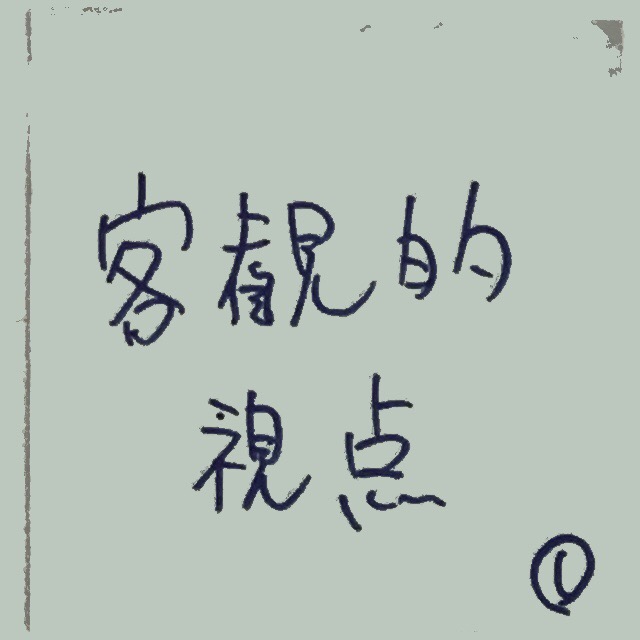 客観的
視点
①